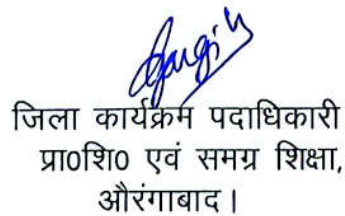 जिला कार्यक्रम पदाधिकारी
प्रा0शि0 एवं समग्र शिक्षा,
औरंगाबाद।